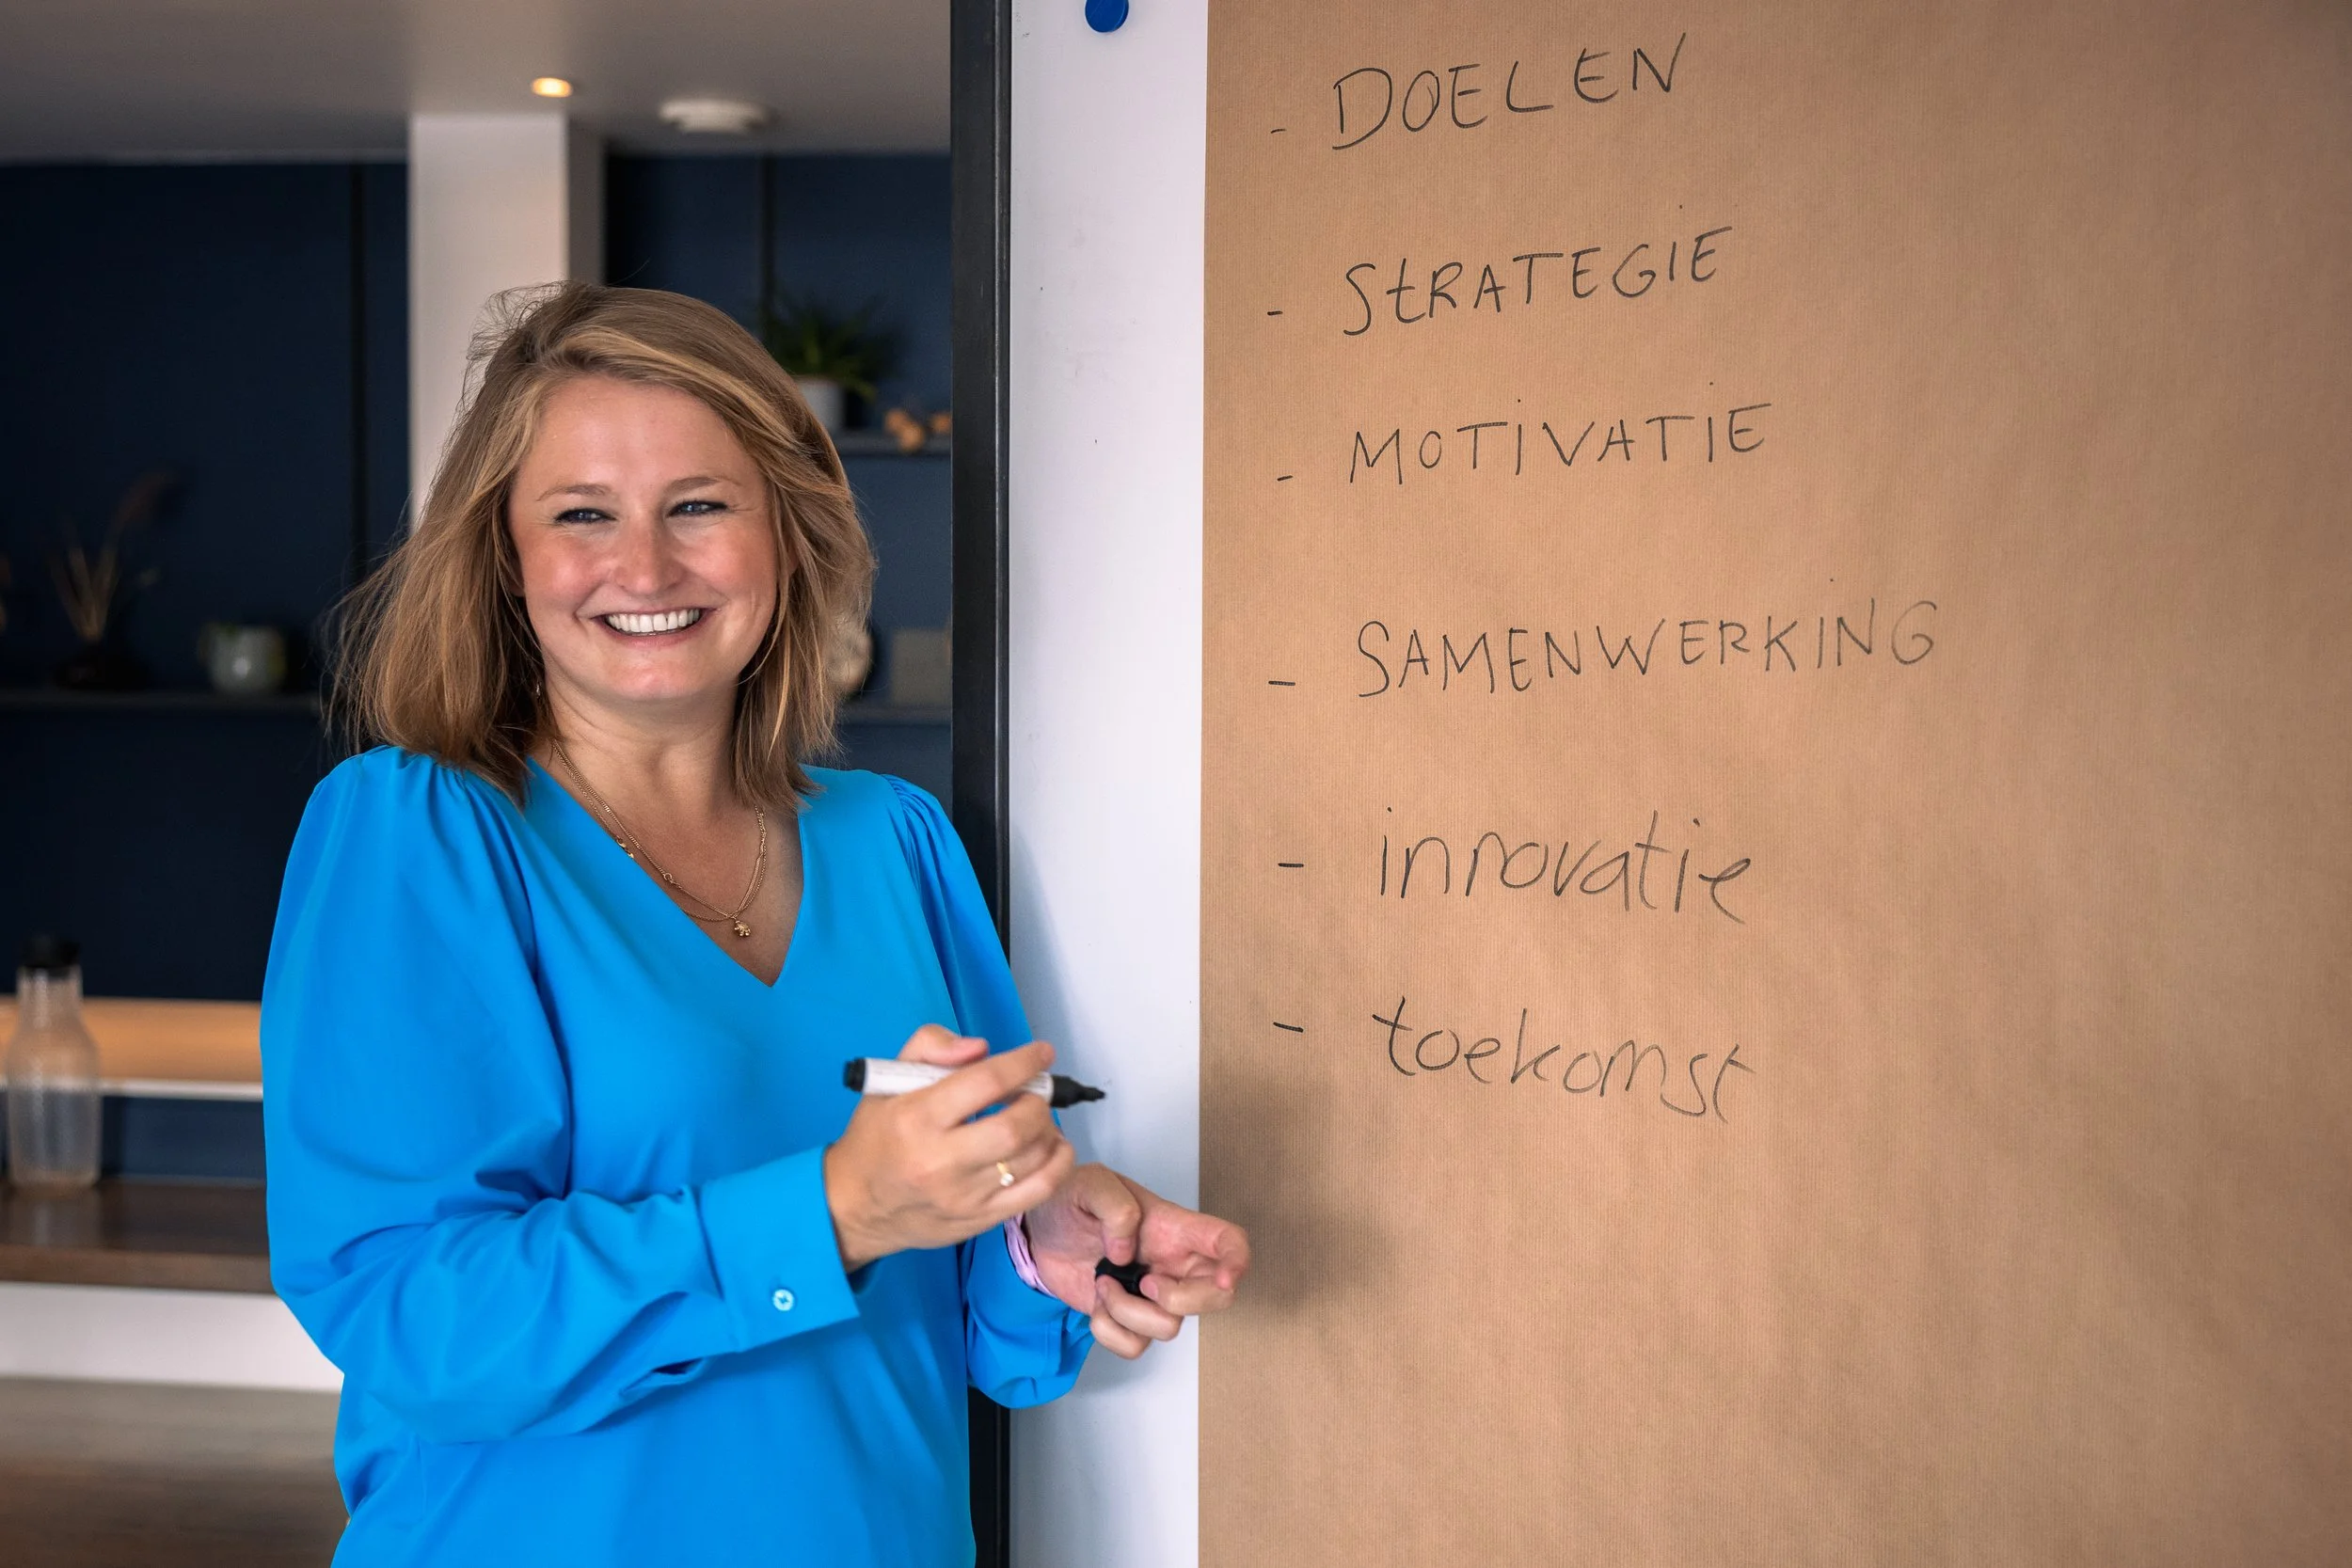 - DOELEN
- StRATEGIE
- MOTiVATIE
- SAMENWERKING
- innovatie
- toekomst